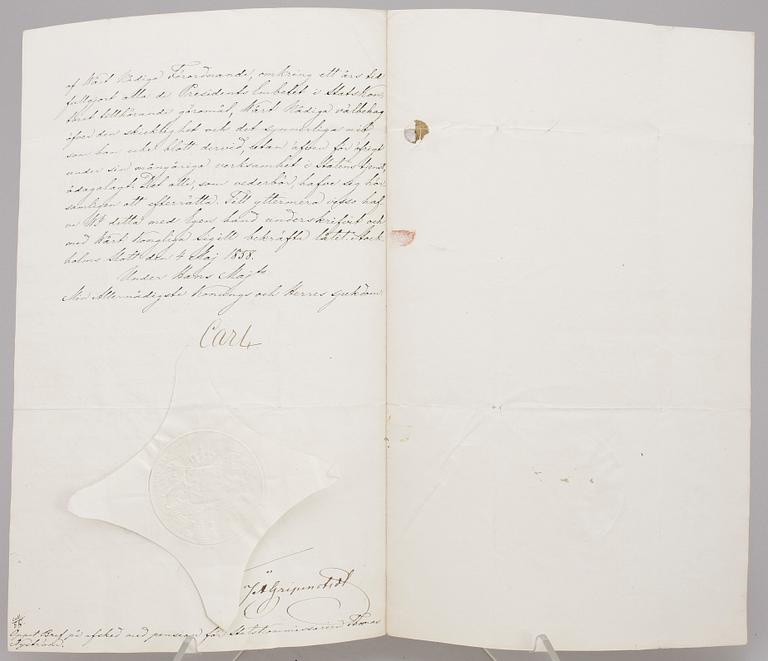 af Wårt Nådiga Förordnande, omkring ett års tid
fullgjort alla de Presidents Embetet i Stats Kon,
toret tillhörande göromål, Wårt Nådiga välbehag
öfver den skicklighet och det synnerliga nit,
som han icke blott dervid, utan äfven för öfrigt
under sin mångåriga verksamhet i Statens tjenst,
ådagalagt. Det alle, som vederbör, hafve sig hör
samligen att efterrätta. Till yttermera visso haf
ve Wi detta med Egen hand underskrifvit och
med Wårt Kongliga Sigill bekräfta låtit. Stock
holms Slott den 4 Maj 1858.
Under Hans Maj:ts
Min Allernådigste Konungs och Herres sjukdom
Carl
J A Gripenstedt
Öppet Bref på afsked med pension för Statskommissarien Thomas